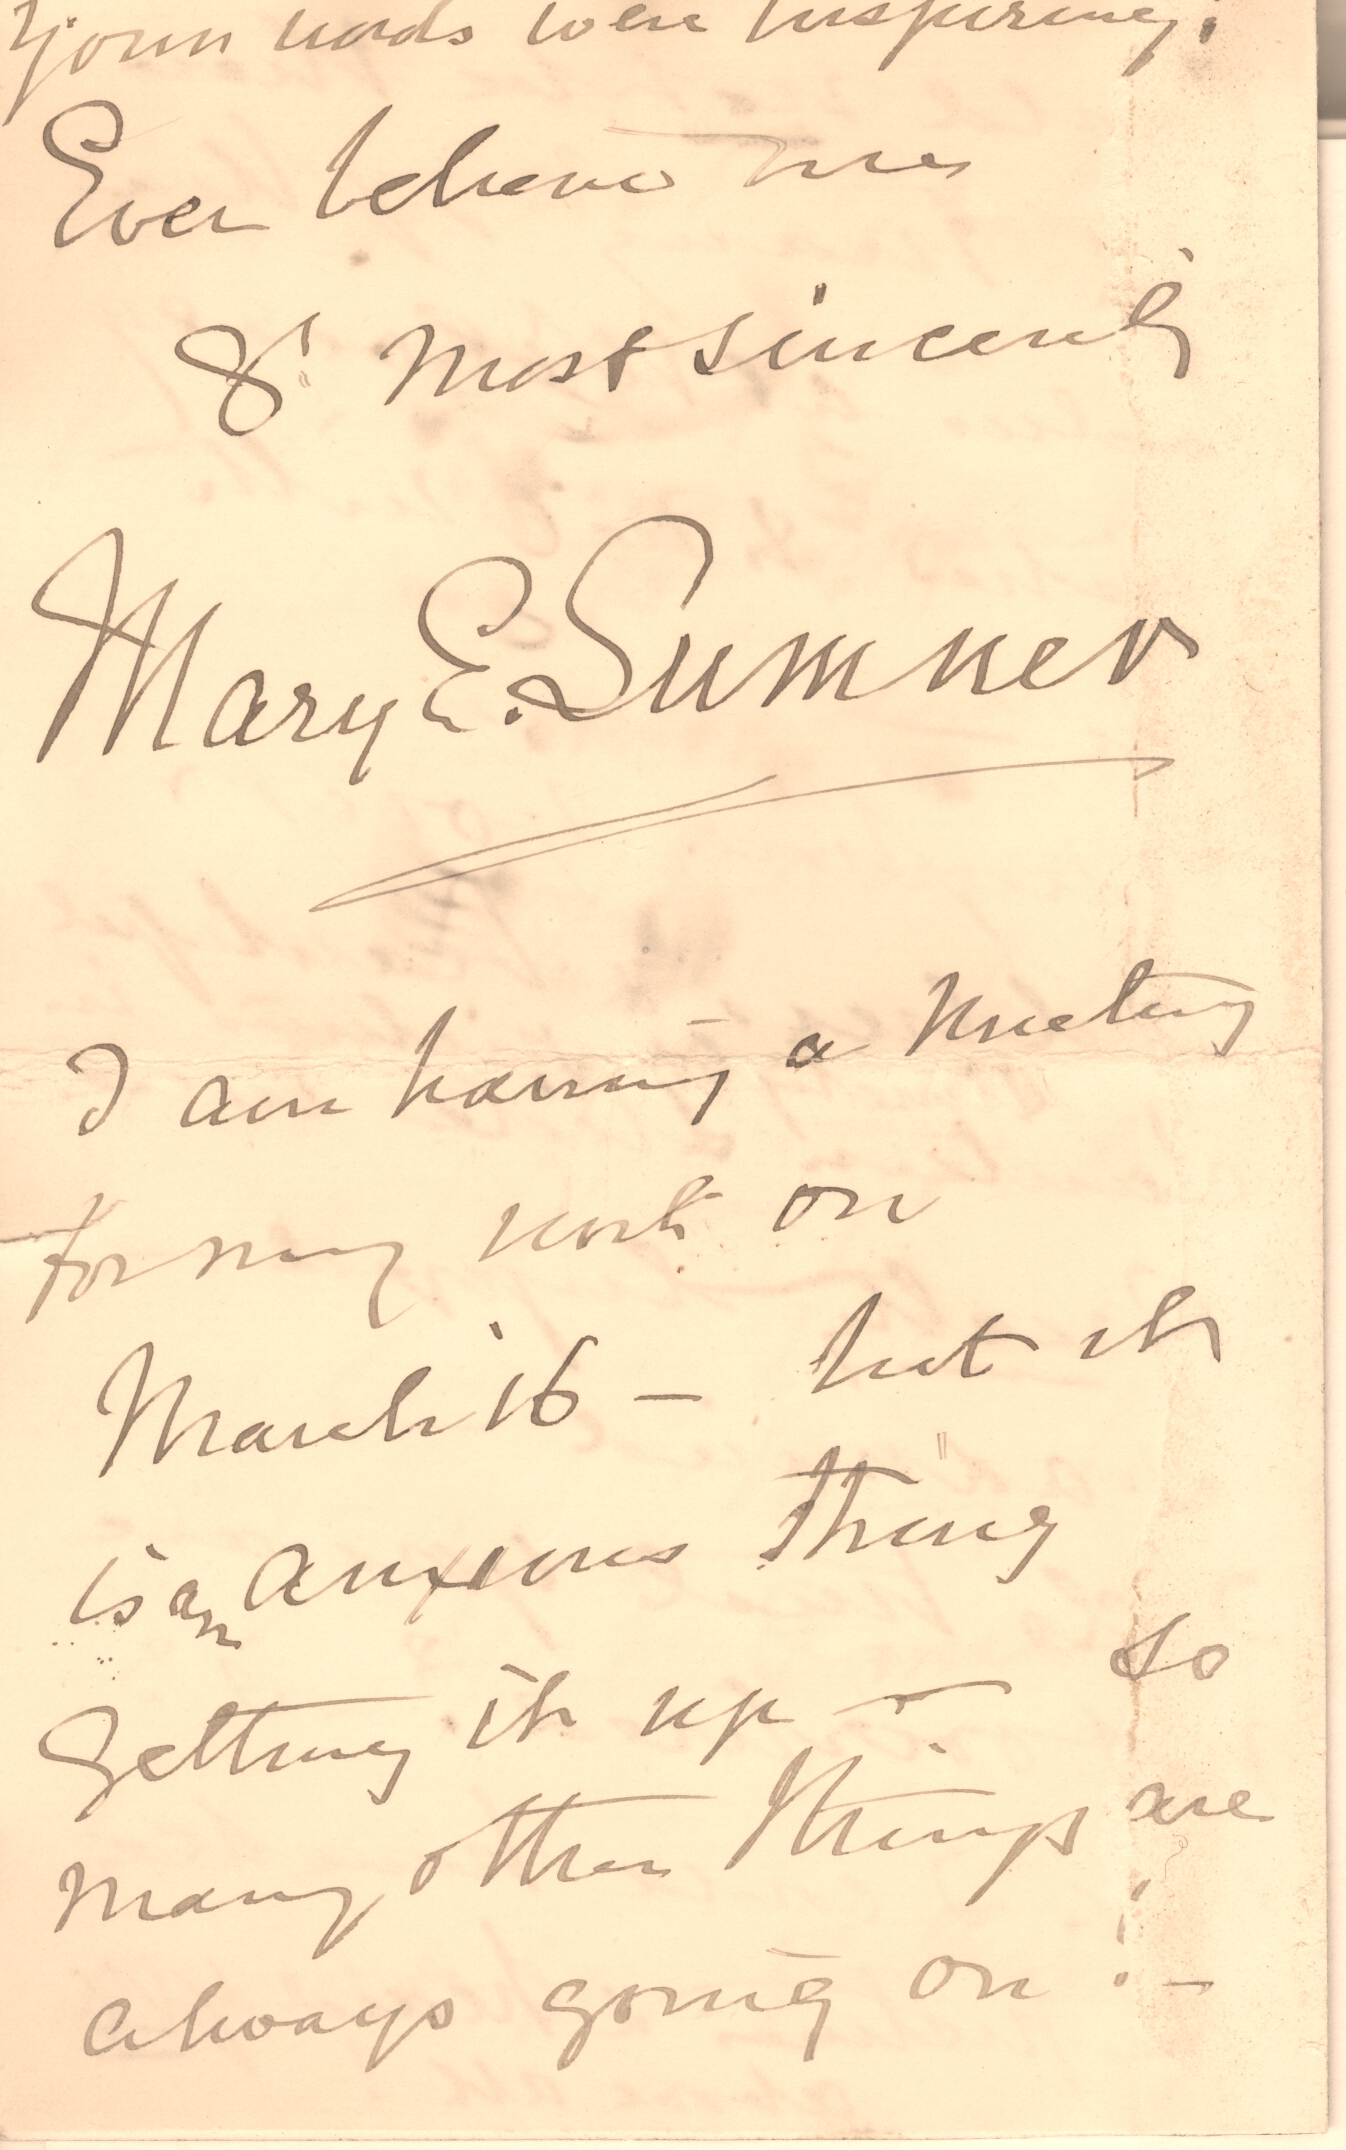 Your words were inspiring.
Ever believe me
Yrs most sincerely
Mary E. Sumner
I am having a Meeting
for my work on
March 16 — but it
is an anxious thing
getting it up — so
many other things are
always going on! —